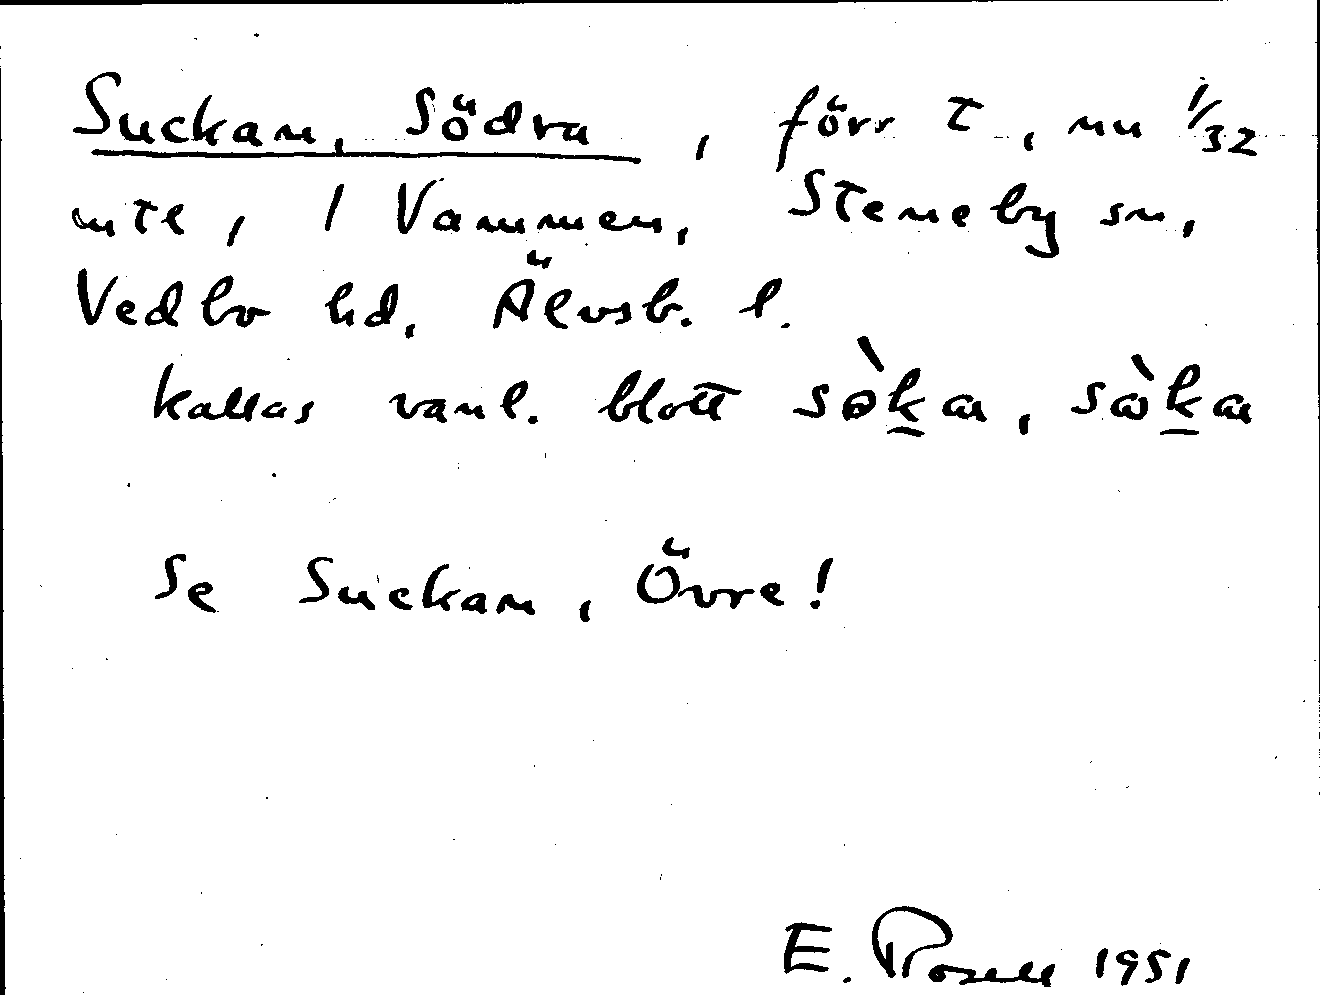 Suckan, Södra, förr t, nu 1/32
mtl, / Vammen, Steneby sn,
Vedbo hd, Älvsb. l.
kallas vanl. blott sòk̲a,
Se Suckan, Övre!
E. Rosell 1951